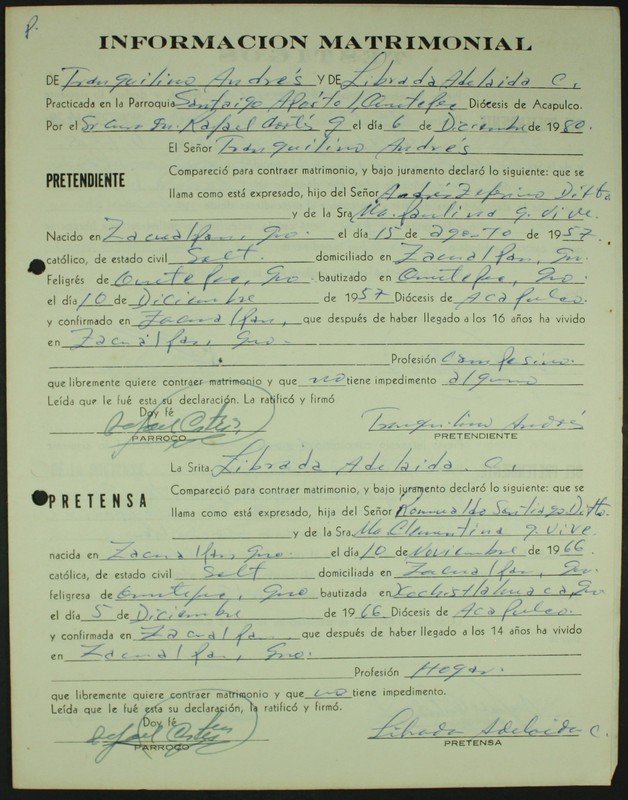 P.
INFORMACION MATRIMONIAL
DE Tranquilino Andrés Y DE Librada Adelaida C.
Practicada en la Parroquia Santiago Apóstol Ometepec Diócesis de Acapulco.
Por el Sr Cura Dn. Rafael Cortés g el día 6 de Diciembre de 1980.
El Señor Tranquilino Andrés
PRETENDIENTE
Compareció para contraer matrimonio, y bajo juramento declaró lo siguiente: que se
llama como está expresado, hijo del Señor Andrés Zeferino Ditto
y de la Sra. Ma. Paulina q. vive.
Nacido en Zacualpan, Gro. el día 15 de agosto de 1957.
católico, de estado civil Solt. domiciliado en Zacualpan, Gro.
Feligrés de Ometepec, Gro. bautizado en Ometepec, Gro.
el día 10 de Diciembre de 1957 Diócesis de Acapulco.
y confirmado en Zacualpan, que después de haber llegado a los 16 años ha vivido
en Zacualpan, Gro.
Profesión Campesino.
que libremente quiere contraer matrimonio y que no tiene impedimento alguno
Leída que le fué esta su declaración. La ratificó y firmó
Doy fé
Rafael Cortés
PARROCO
Tranquilino Andrés
PRETENDIENTE
La Srita. Librada Adelaida. C.
PRETENSA
Compareció para contraer matrimonio, y bajo juramento declaró lo siguiente: que se
llama como está expresado, hija del Señor Romualdo Santiago Ditto.
y de la Sra. Ma Clementina q. vive.
nacida en Zacualpan, Gro. el día 10 de Noviembre de 1966.
católica, de estado civil Solt domiciliada en Zacualpan, Gro.
feligresa de Ometepec, Gro bautizada en Xochistlahuaca, Gro
el día 5 de Diciembre de 1966 Diócesis de Acapulco.
y confirmada en Zacualpan que después de haber llegado a los 14 años ha vivido
en Zacualpan, Gro.
Profesión Hogar.
que libremente quiere contraer matrimonio y que no tiene impedimento.
Leída que le fué esta su declaración, la ratificó y firmó.
Doy fé
Rafael Cortés
PARROCO
Librada Adelaida C.
PRETENSA